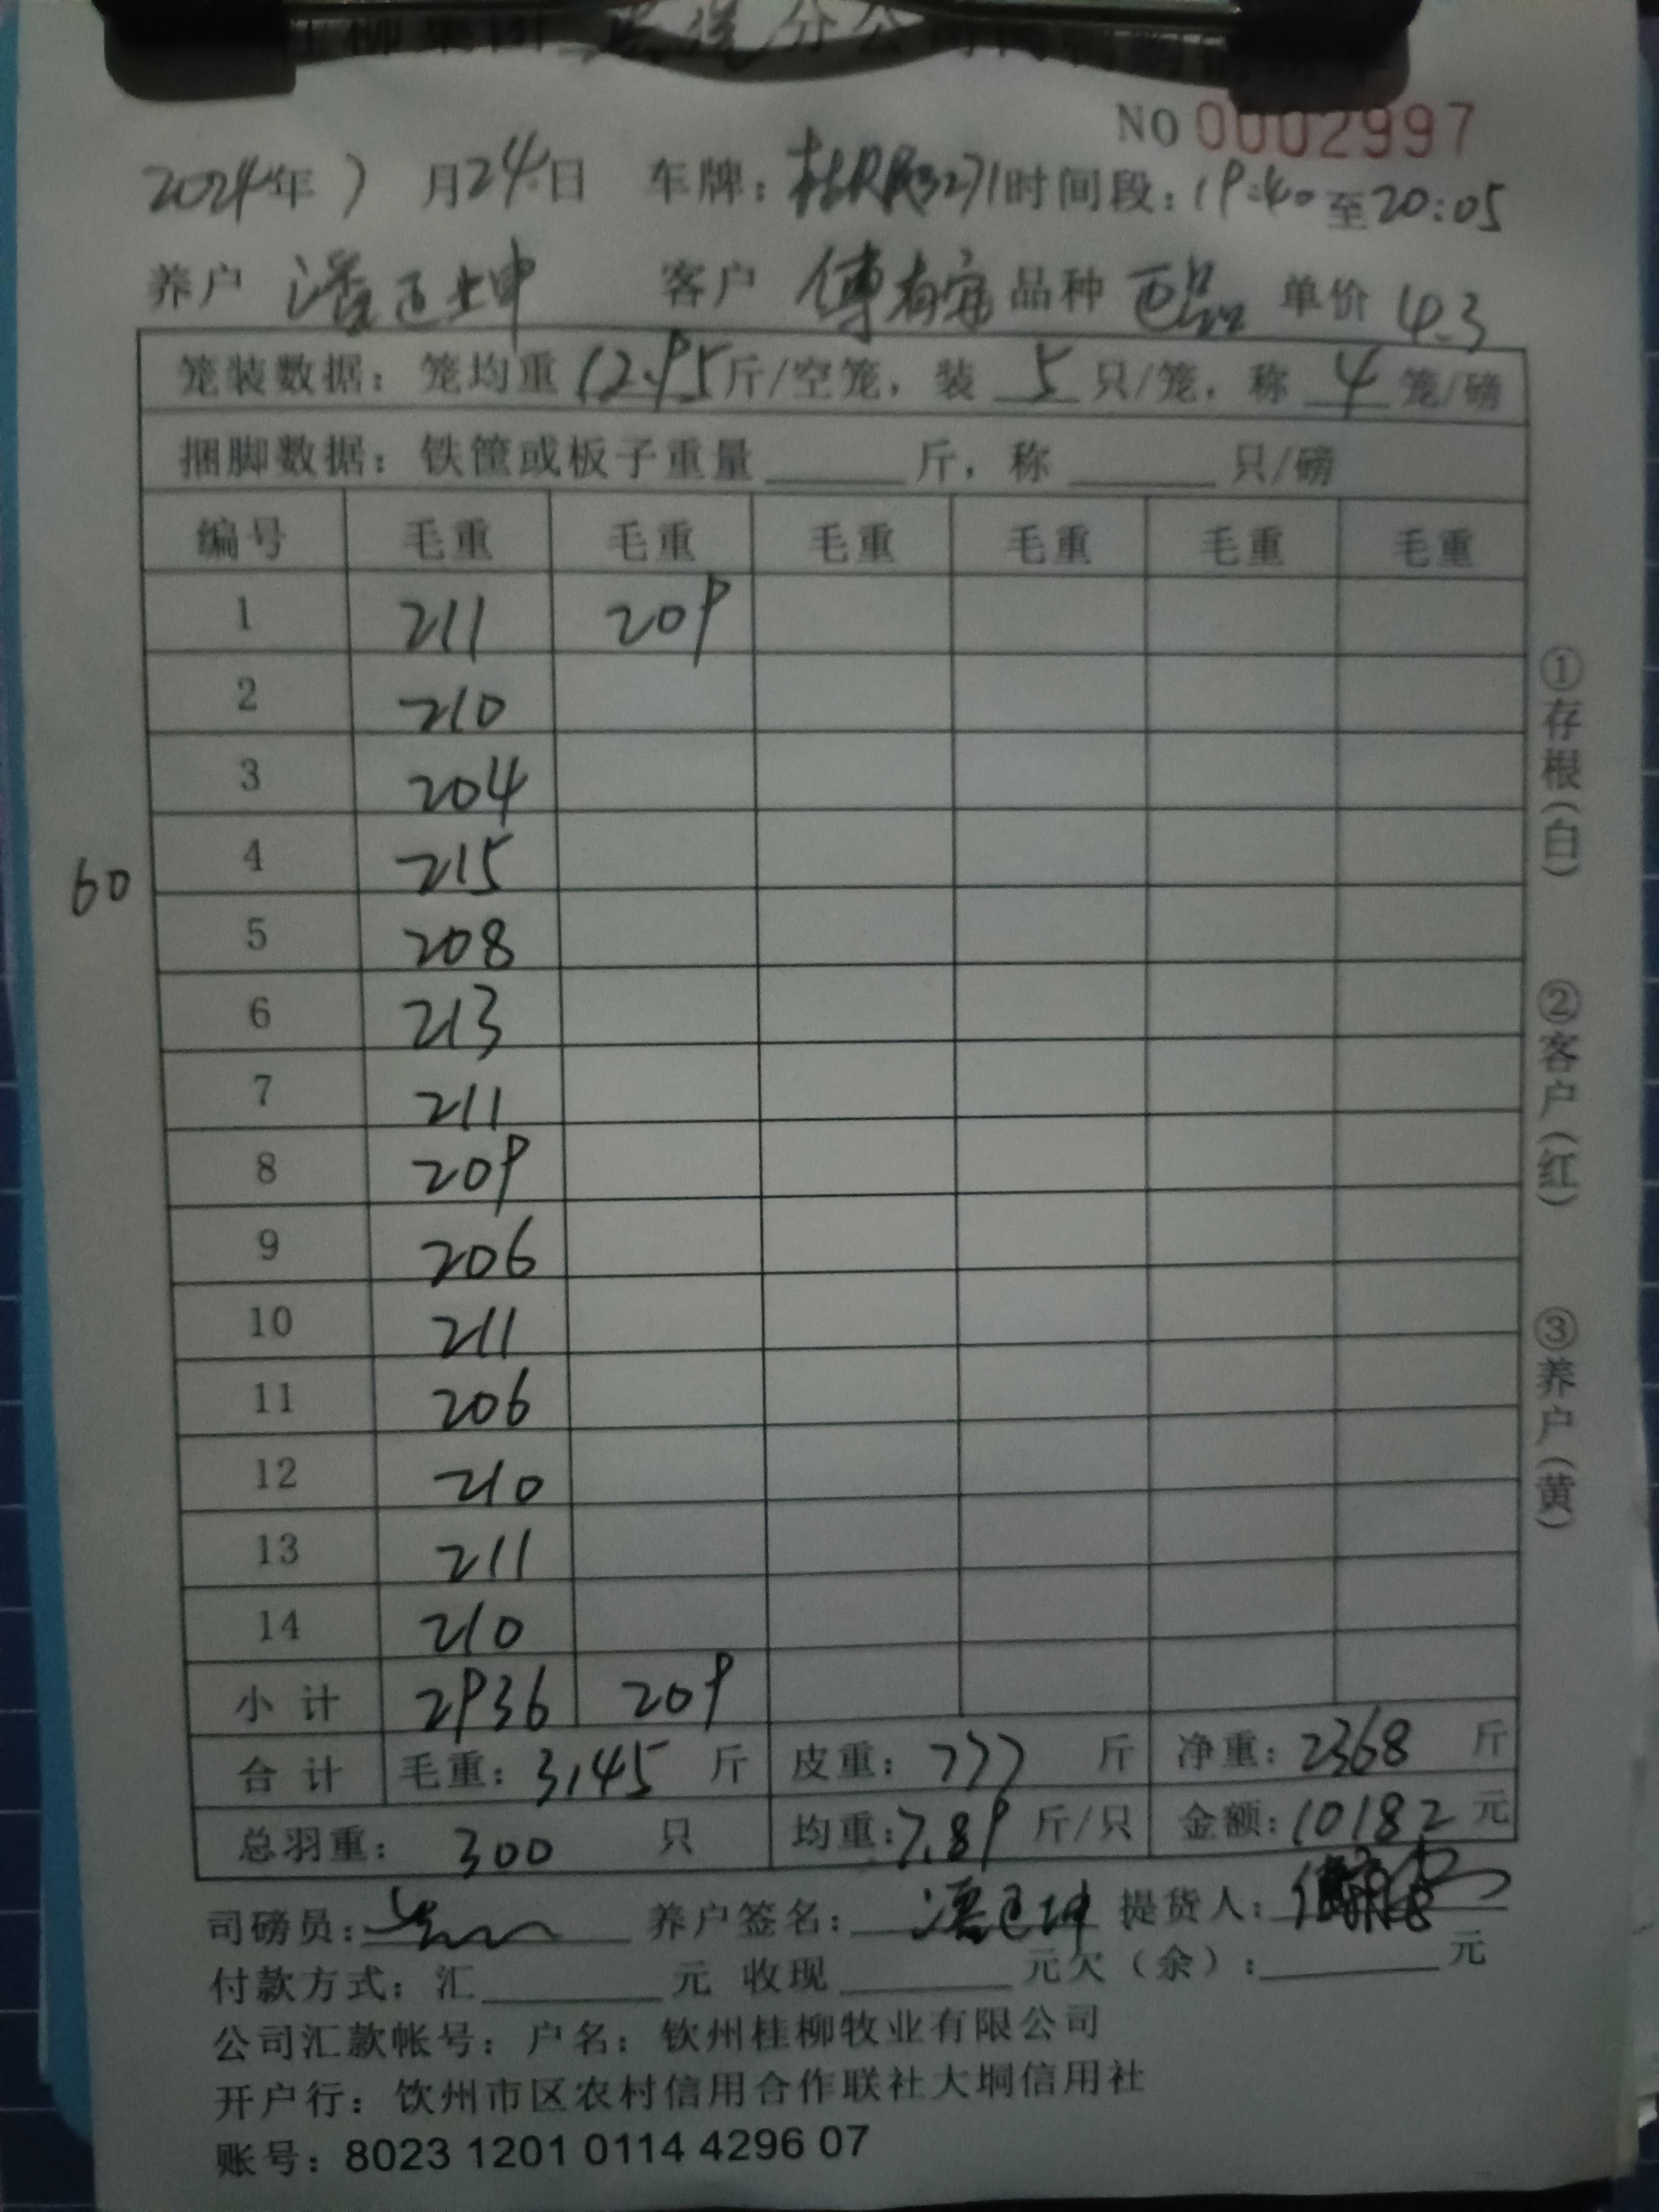 NO 0002997
2024年7月24日 车牌: 时间段:19:40至20:05
养户 潘 坤 客户 傅有 品种 单价 4.3
笼装数据:笼均重 12.95 斤/空笼,装 5 只/笼,称 4 笼/磅
捆脚数据:铁筐或板子重量______斤,称______只/磅
编号 毛重 毛重 毛重 毛重 毛重 毛重
1 211 209
2 210
3 204
①存根(白)
4 215
60
5 208
6 213
②客户(红)
7 211
8 209
9 206
10 211
③养户(黄)
11 206
12 210
13 211
14 210
小计 2936 209
合计 毛重:3145 斤 皮重:777 斤 净重:2368 斤
总羽重:300 只 均重:7.89 斤/只 金额:10182 元
司磅员: 养户签名: 提货人:
付款方式:汇______元 收现______元欠(余):______元
公司汇款帐号:户名:钦州桂柳牧业有限公司
开户行:钦州市区农村信用合作联社大垌信用社
账号:8023 1201 0114 4296 07